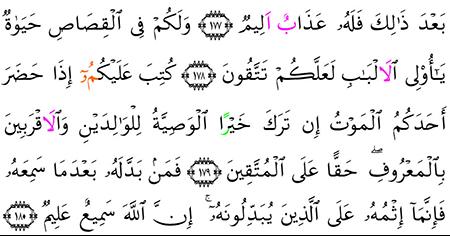 بَعْدَ ذَٰلِكَ فَلَهُۥ عَذَابٌ اَلِيمٌ ١٧٧ وَلَكُمْ فِى ٱلْقِصَاصِ حَيَوٰةٌ
يَـٰٓأُوْلِى ٱلَالْبَـٰبِ لَعَلَّكُمْ تَتَّقُونَ ١٧٨ كُتِبَ عَلَيْكُمُۥٓ إِذَا حَضَرَ
أَحَدَكُمُ ٱلْمَوْتُ إِن تَرَكَ خَيْرًا ٱلْوَصِيَّةُ لِلْوَٰلِدَيْنِ وَٱلَاقْرَبِينَ
بِٱلْمَعْرُوفِ ۖ حَقًّا عَلَى ٱلْمُتَّقِينَ ١٧٩ فَمَنۢ بَدَّلَهُۥ بَعْدَمَا سَمِعَهُۥ
فَإِنَّمَآ إِثْمُهُۥ عَلَى ٱلَّذِينَ يُبَدِّلُونَهُۥٓ ۚ إِنَّ ٱللَّهَ سَمِيعٌ عَلِيمٌ ١٨٠